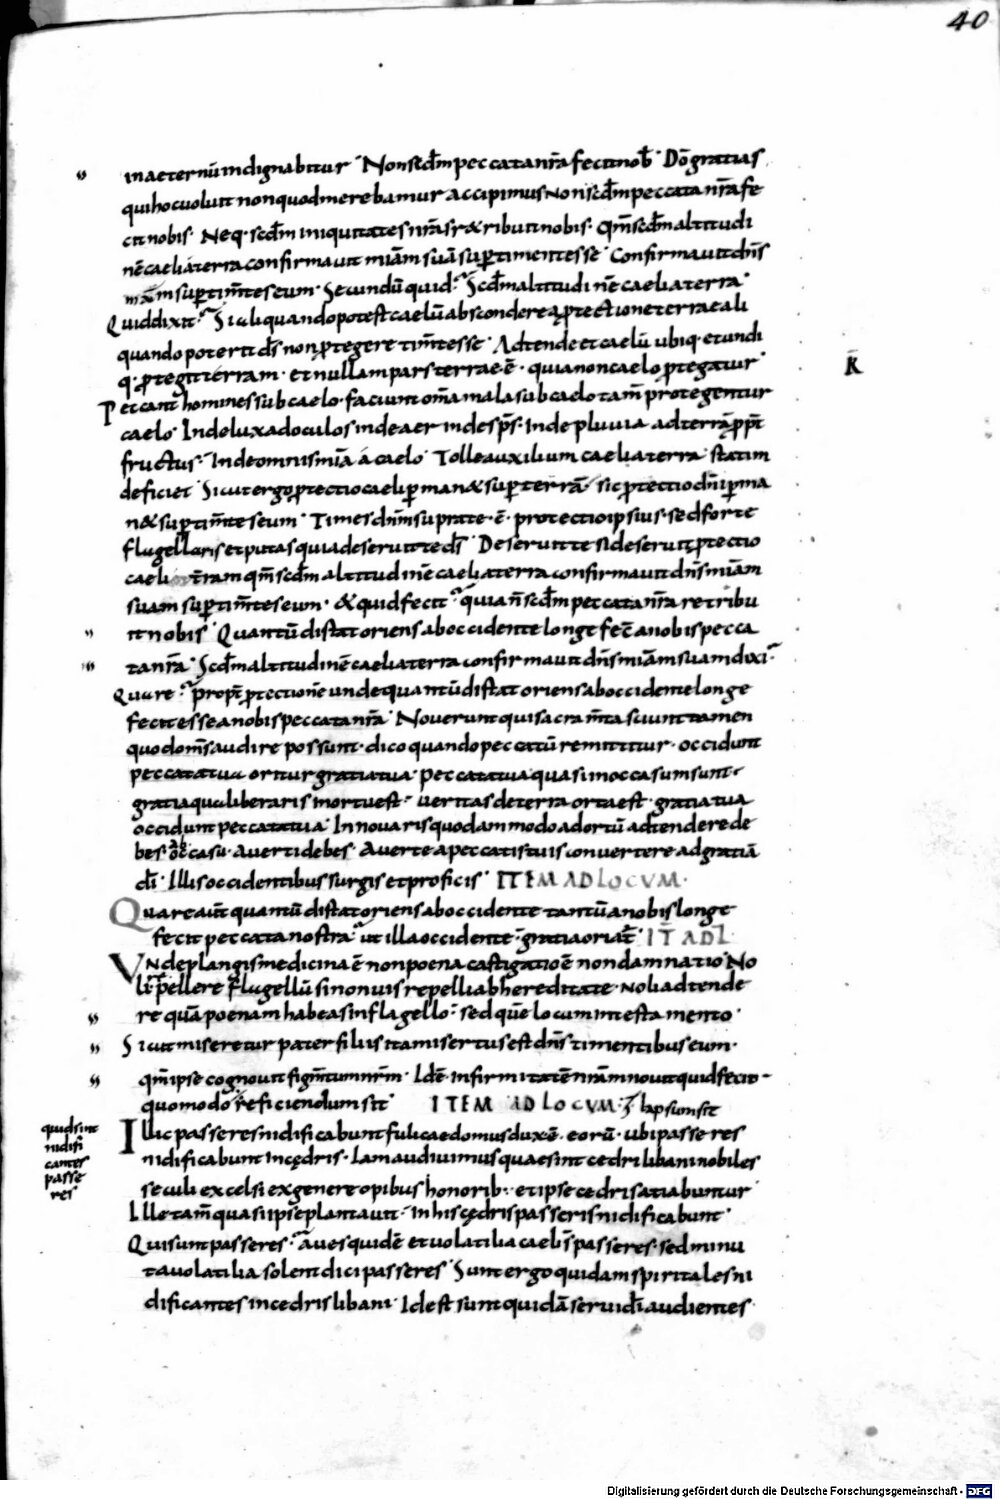 40
in aeternū indignabitur · Non scd̄m peccata nr̄a fecit nob̄ · Dō gratias
qui hoc voluit non quod merebamur accipimus Non scd̄m peccata nr̄a fe
cit nobis · Neq· scd̄m iniquitates nr̄as r&ribuit nobis · Qm̄ scd̄m altitudi
nē caeli a terra confirmavit miām suā sup̄ timentes se · Confirmavit dn̄s
miām sup̄ tim̄tes eum · Secundū quid · Scd̄m altitudinē caeli a terra ·
Quid dixit · Si aliquando potest caelū abscondere a p̄tectione terrae ali
quando poterit ds̄ non p̄tegere tim̄tes se · Adtende et caelū ubiq· et undi
q· p̄tegit terram · et nullam pars terrae ē · quia non caelo p̄tegatur ·
K̄
Peccant homines sub caelo · faciunt om̄a mala sub caelo tam̄ protegentur
caelo · Inde lux ad oculos inde aer inde sps̄ · Inde pluvia ad terrā p̄pt̄
fructus · Inde omnis miā a caelo · Tolle auxilium caeli a terra statim
deficiet · Sicut ergo p̄tectio caeli p̄man& sup̄ terrā sic p̄tectio dn̄i p̄ma
n& sup̄ tim̄tes eum · Times dn̄m supra te · ē · protectio ipsius · sed forte
flugellaris et putas quia deseruit te ds̄ · Deseruit te si deseruit p̄tectio
caeli t̄ram qm̄ scd̄m altitudinē caeli a terra confirmavit dn̄s miām
suam sup̄ tim̄tes eum · & quid fecit · quia n̄ scd̄m peccata nr̄a retribu
it nobis · Quantū distat oriens ab occidente longe fec̄ a nobis pecca
ta nr̄a · Scd̄m altitudinē caeli a terra confirmavit dn̄s miām suam dixi ·
Quare · propt̄ p̄tectionē unde quantū distat oriens ab occidente longe
fecit esse a nobis peccata nr̄a · Noverunt qui sacram̄ta sciunt tamen
quod om̄s audire possunt · dico quando peccatū remittitur · occidunt
peccata tua oritur gratia tua · peccata tua quasi in occasum sunt ·
gratia qua liberaris in ortu est · veritas de terra orta est · gratia tua
occidunt peccata tua · In nova ris quodammodo ad ortū adtendere de
bes occasu · averti debes · averte a peccatis tuis convertere ad gratiā
di̅ · Illis occidentibus surgis et proficis · ITEM AD LOCUM ·
Quare aut̄ quantū distat oriens ab occidente tantū a nobis longe
fecit peccata nostra · ut illa occidente · gratia oriat̄ · IT̄ AD L̄
Unde plangis medicina ē non poena castigatio ē non damnatio · No
li repellere flugellū si non vis repelli ab hereditate · noli adtende
re quā poenam habeas in flagello · sed quē locum in testamento ·
Sicut miseretur pater filiis ita misertus est dn̄s timentibus eum ·
qm̄ ipse cognovit figm̄tum nr̄m · Id ē · infirmitatē nr̄am novit quid fecit ·
quomodo reficiendum sit ITEM AD LOCUM · lapsum sit
quid sint
nidifi
cantes
passe
res
Illic passeres nidificabunt fulicae domus dux ē · eorū · ubi passeres
nidificabunt In cędris · Iam audivimus quae sint cedri libani nobiles
seculi excelsi ex genere opibus honorib· et ipse cedri satiabuntur ·
Ille tam̄ quas ipse plantavit · In his cędris passeris nidificabunt ·
Qui sunt passeres · aves quidē et volatilia caeli s̄ passeres · sed minu
ta volatilia solent dici passeres · Sunt ergo quidam spiritales ni
dificantes in cedris libani · Id est sunt quidā servi di̅ audientes ·
Digitalisierung gefördert durch die Deutsche Forschungsgemeinschaft - DFG